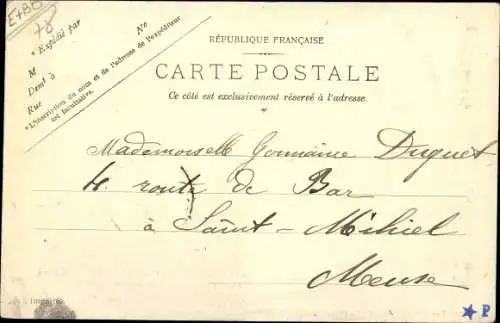 E+BB
78
Nº
* Expédié par
M
Demt à
Rue
*L'inscription du nom et de l'adresse de l'expéditeur
est facultative.
RÉPUBLIQUE FRANÇAISE
CARTE POSTALE
Ce côté est exclusivement réservé à l'adresse.
Mademoiselle Germaine Duguet
4. route de Bar
à Saint-Mihiel
Meuse
P